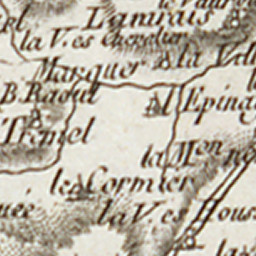 Lamrais
la V. es Chevelier
Marquer
la Vill
B. Raoul
l'Epina
Tremel
la Mon no
les Cormier
la V. es Hous